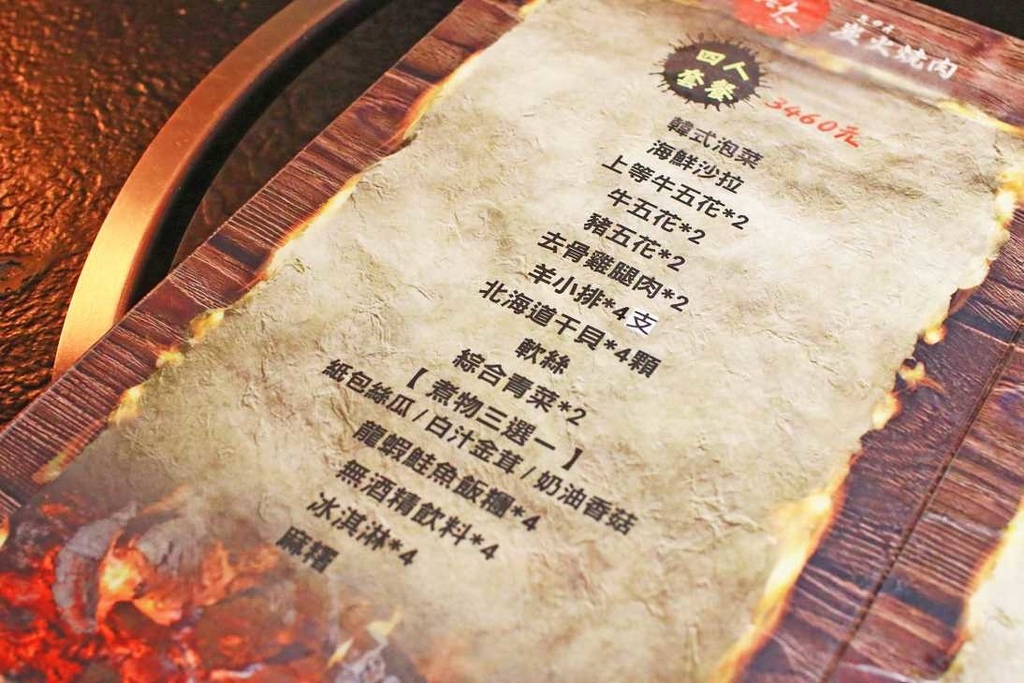 炭火燒肉
四人
套餐
3460元
韓式泡菜
海鮮沙拉
上等牛五花*2
牛五花*2
豬五花*2
去骨雞腿肉*2
羊小排*4支
北海道干貝*4顆
軟絲
綜合青菜*2
【煮物三選一】
紙包絲瓜/白汁金茸/奶油香菇
龍蝦鮭魚飯糰*4
無酒精飲料*4
冰淇淋*4
麻糬